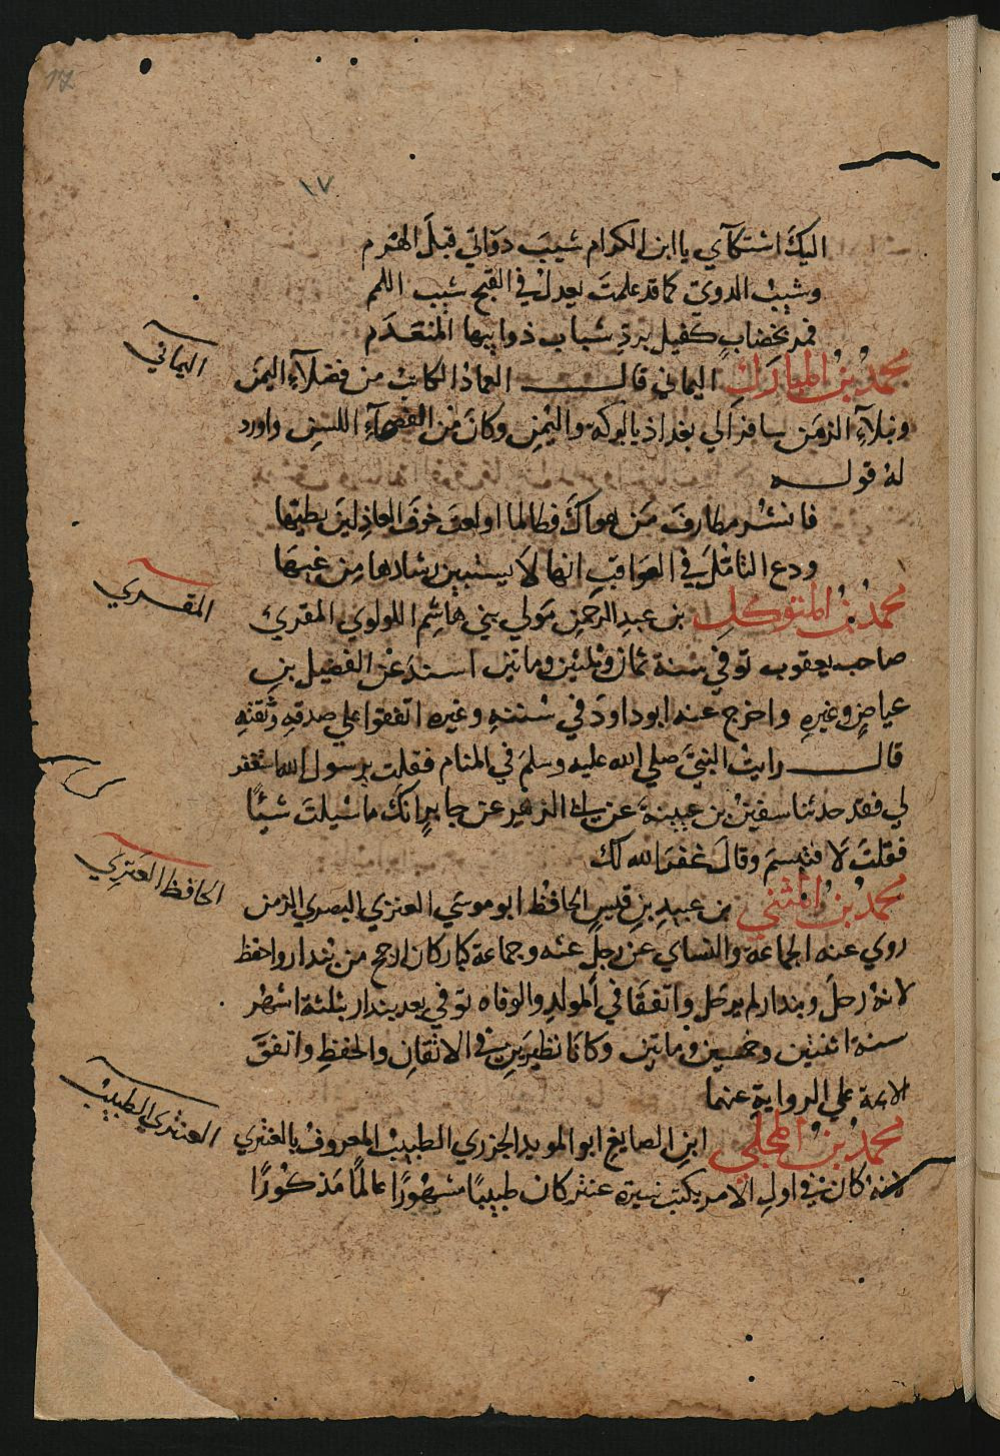 17
١٧
اليكَ اشتكآي يا ابن الكرام شيبَ دوَاتي قبلَ الهَرم
وشيبُ الدويّ كما قد علمتَ يعدلُ في القبح شيب اللمم
فمر بخضابٍ كفيل بردِ شباب ذوايبها المنقدَم
محمدُ بنُ المبارَك اليماني قال العمادُ الكاتبُ من فضلآءِ اليمَن
اليماني
ونبلآءِ الزمَن سافرَ الي بغداذ بالبركه واليُمنِ وكانَ منَ الفصحآءِ اللسنِ واورد
لهُ قوله
فانشُر مطارفَ مَن هواكَ فطالما اولعتَ خوفَ العاذِلينَ بطيّها
ودع التامّلَ في العَواقبِ انها لاَ يستبين رشادها مِن غيّهَا
محمدُ بنُ المتوكلِ بن عبدِ الرحمنِ مَولي بني هاشِم اللولوي المقرئ
المقري
صاحب يعقوب توفي سنة ثمان وثلثين وماتين اسندَ عَن الفضيل بنِ
عياضٍ وغيرهِ واخرج عنه ابو داودَ في سُننهِ وغيره اتفقوا علي صدقهِ وثقتهِ
قال رايتُ النبيَّ صلي الله عليه وسلمَ في المنام فقلت يرسول الله استغفر
لي فقد حدثنا سفينُ بن عيينةَ عن ابي الزبير عن جابرٍ انكَ ما سُيلتَ شيئًا
فقلتَ لَا فتبسمَ وقالَ غفرَ الله لك
محمدُ بنُ المثني بن عبيدِ بنِ قيسٍ الحافظُ ابو موسَي العنزي البصري الزمن
الحافظ العَنزي
روي عنه الجماعة والنساي عن رجلٍ عنه وجماعة كبار كان ارجح من بُندار واحفظ
لانهُ رحلَ وبندار لم يرحَل واتفقَا في المولدِ والوفاه توفي بعد بندار بثلثة اشهُر
سنة اثنتين وخمسين وماتين وكانَا نظيرَين في الاتقانِ والحفظِ واتفقَ
الايمة علي الروايةِ عنهما
محمدُ بنُ المجلي ابنِ الصايغ ابو المويد الجزري الطبيبُ المعروفُ بالعنتري
العنتري الطبيبُ
لانهُ كان في اولِ الامر يكتب سيرة عنتر كان طبيبًا مشهُورًا عالمًا مَذكُورًا